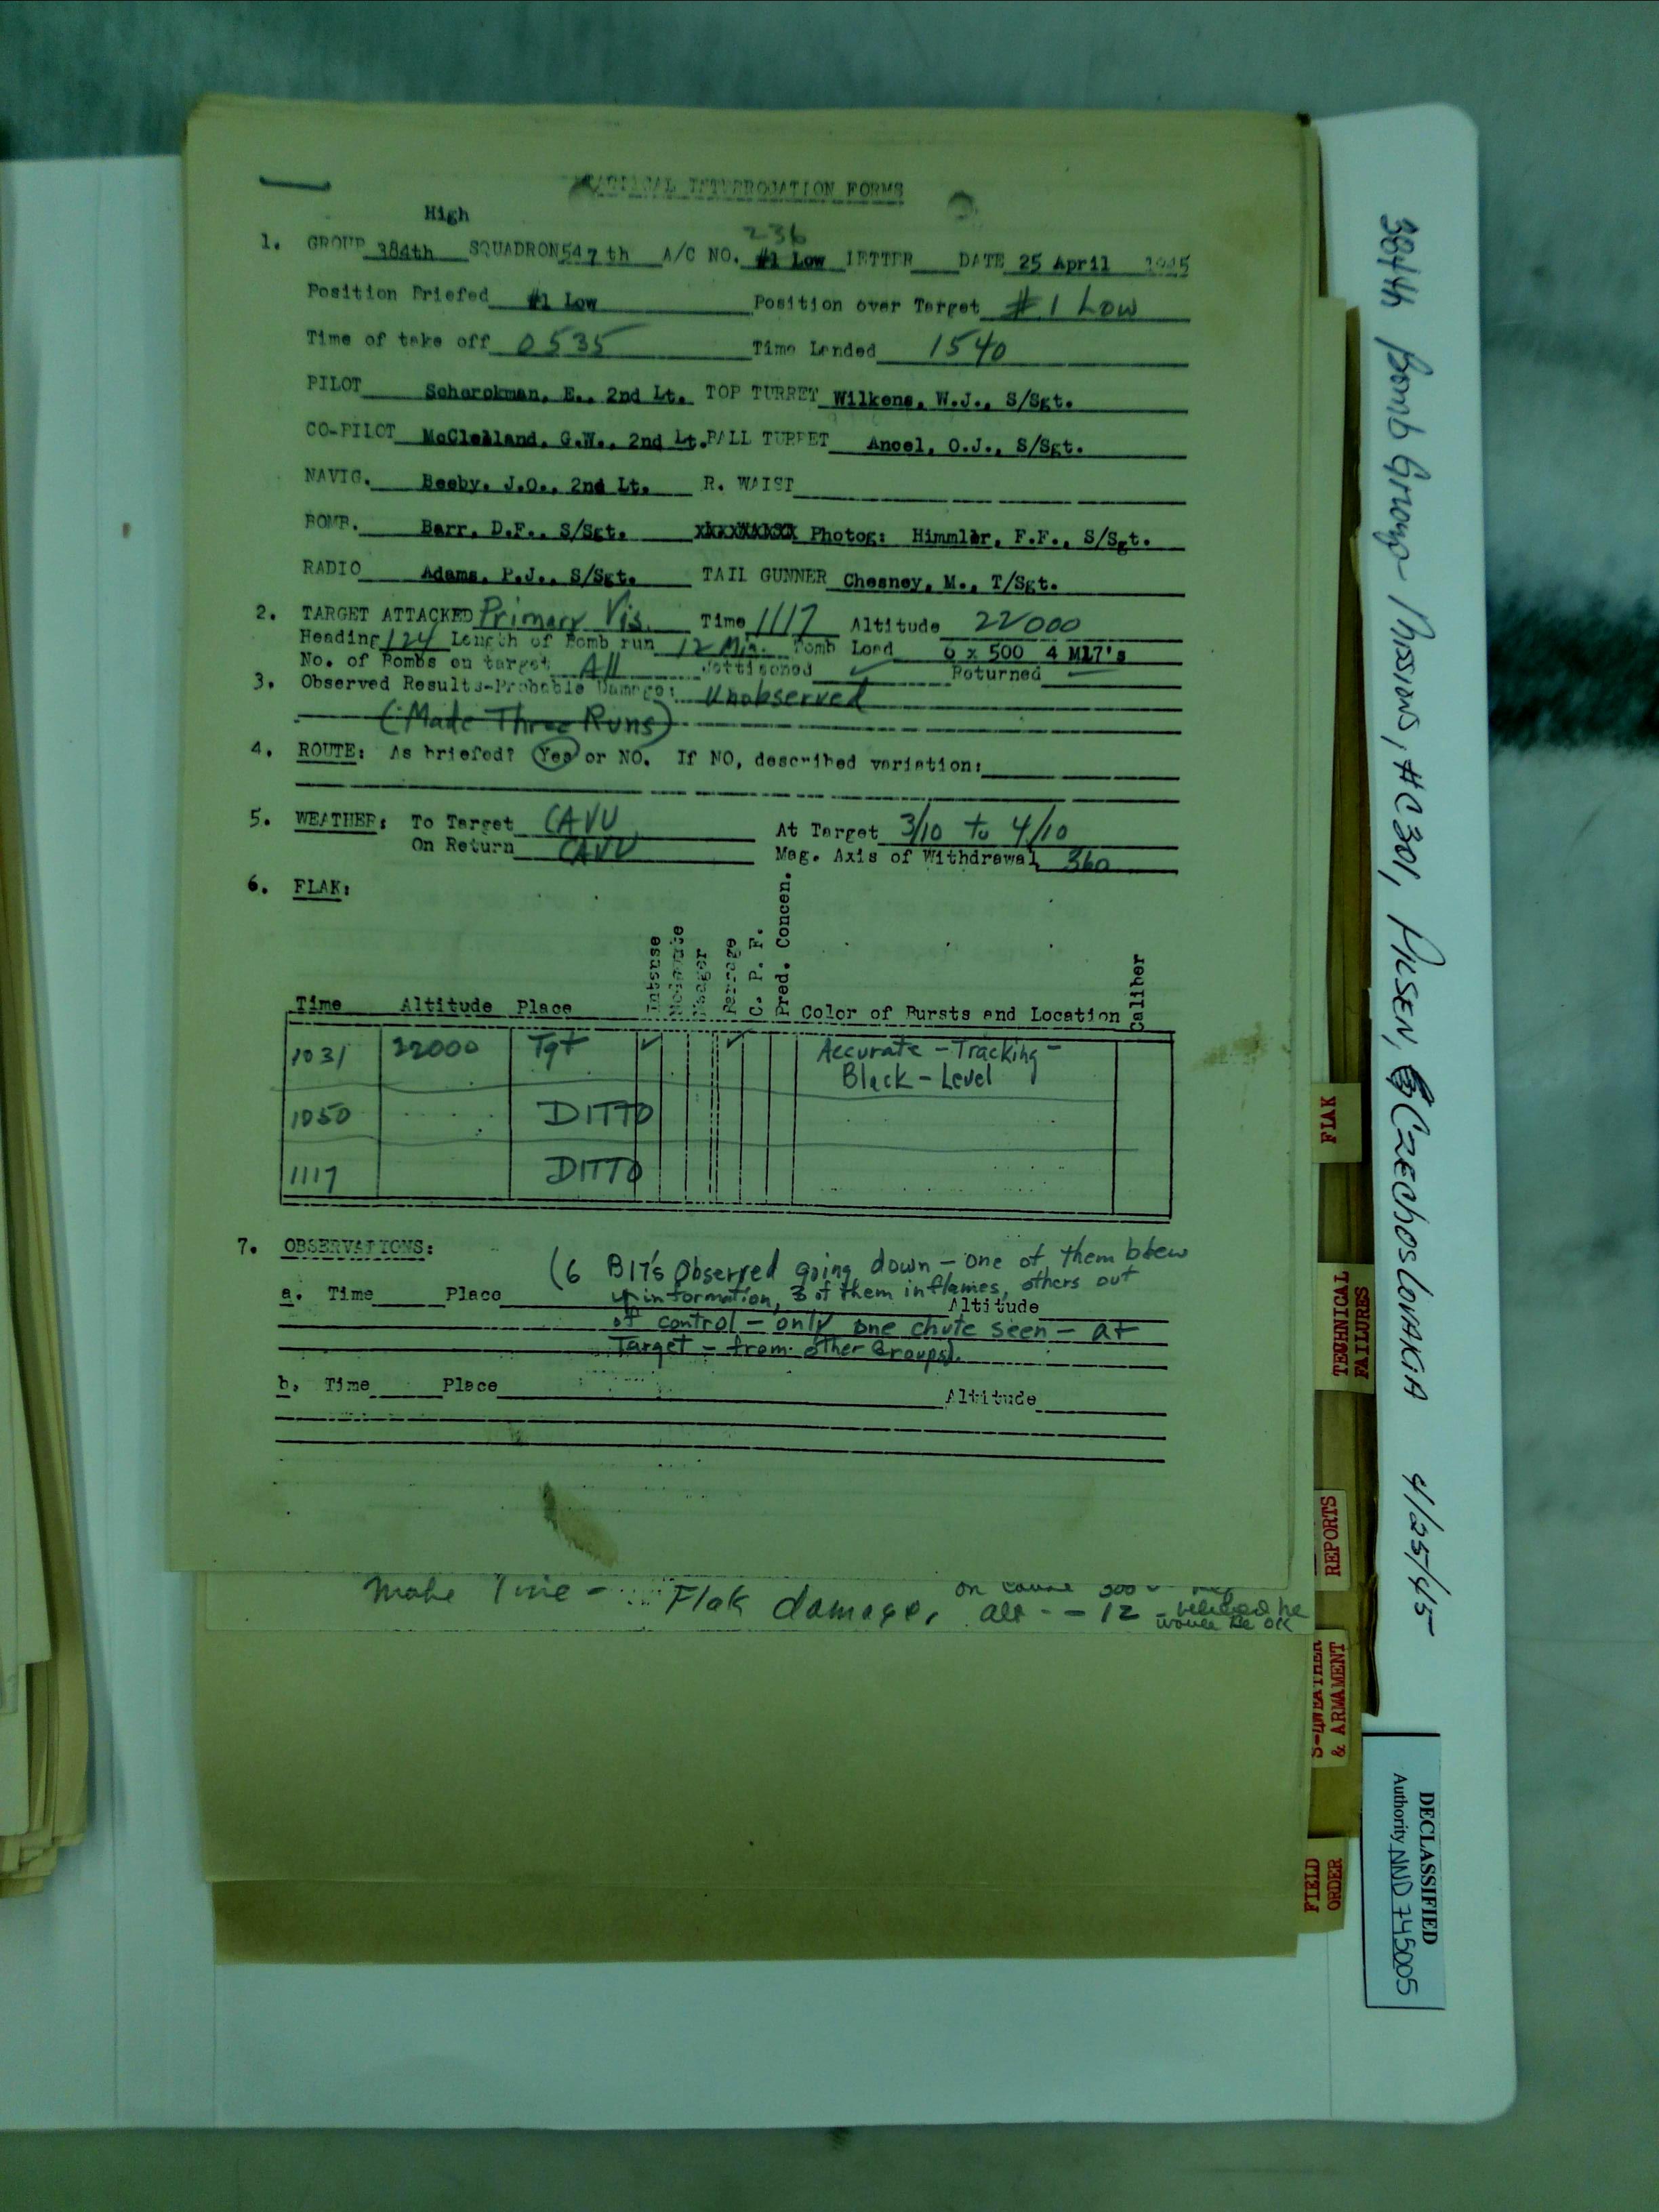 TACTICAL INTERROGATION FORMS
High
236
1. GROUP 384th SQUADRON 547 th A/C NO. #1 Low LETTER DATE 25 April 1945
Position Briefed #1 Low Position over Target #1 Low
Time of take off 0535 Time Landed 1540
PILOT Scharokman, E., 2nd Lt. TOP TURRET Wilkens, W.J., S/Sgt.
CO-PILOT McClelland, G.W., 2nd Lt. BALL TURRET Ancel, O.J., S/Sgt.
NAVIG. Beeby, J.O., 2nd Lt. R. WAIST
BOMB. Barr, D.F., S/Sgt. Photog: Himmler, F.F., S/Sgt.
RADIO Adams, P.J., S/Sgt. TAIL GUNNER Chesney, M., T/Sgt.
2. TARGET ATTACKED Primary Vis. Time 1117 Altitude 22000
Heading 124 Length of Bomb run 12 Min. Bomb Load 6 x 500 4 M17's
No. of Bombs on target All Jettisoned ✓ Returned —
3. Observed Results-Probable Damage: Unobserved
(Made Three Runs)
4. ROUTE: As briefed? Yes or NO. If NO, described variation:
5. WEATHER: To Target CAVU At Target 3/10 to 4/10
On Return CAVU Mag. Axis of Withdrawal 360
6. FLAK:
Time Altitude Place Intense Moderate Meager Barrage C. P. F. Pred. Concen. Color of Bursts and Location Caliber
1031 22000 Tgt ✓ ✓ Accurate - Tracking -
Black - Level
1050 DITTO
1117 DITTO
7. OBSERVATIONS:
(6 B17's Observed going down - one of them blew
a. Time Place up in formation, 3 of them in flames, others out Altitude
of control - only one chute seen - at
Target - from other Groups).
b. Time Place Altitude
make Time - Flak damage, alt - - 12 - believed he
would be OK
384th Bomb Group Missions, #C 301, PilSEN, CZEchoslovAKiA 4/25/45
FLAK
TECHNICAL
FAILURES
REPORTS
S-4WEATHER
& ARMAMENT
FIELD
ORDER
DECLASSIFIED
Authority NND 745005